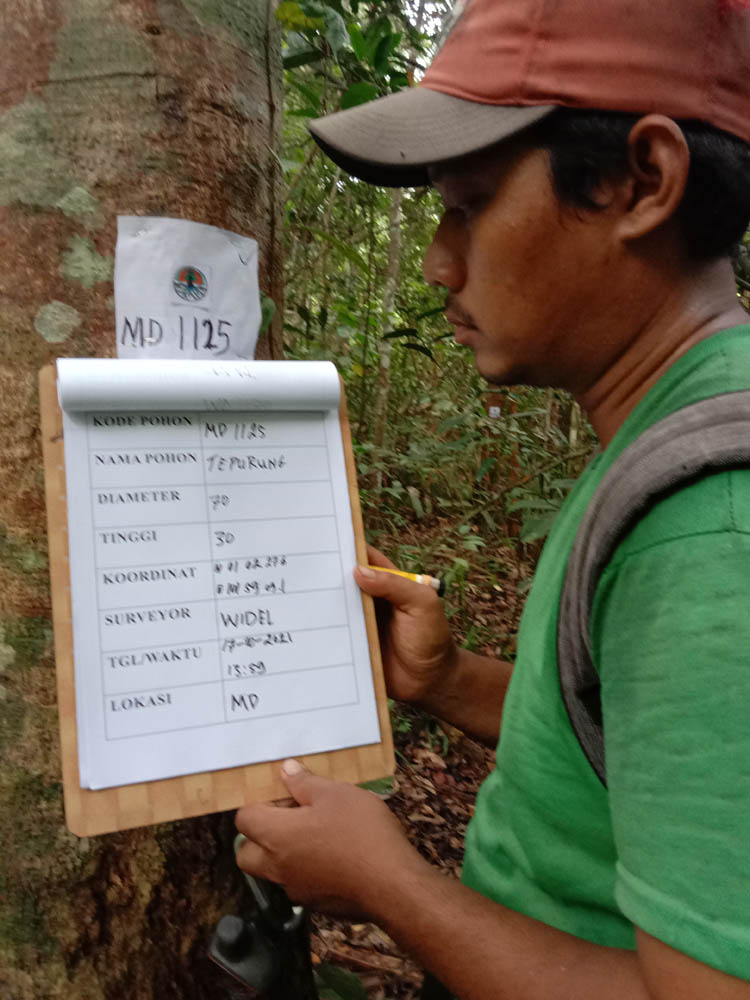 MD 1125
KODE POHON MD 1125
NAMA POHON TEPURUNG
DIAMETER 70
TINGGI 30
KOORDINAT N 01 02 276
59 09.1
SURVEYOR WIDEL
TGL/WAKTU 17-10-2021
13:59
LOKASI MD